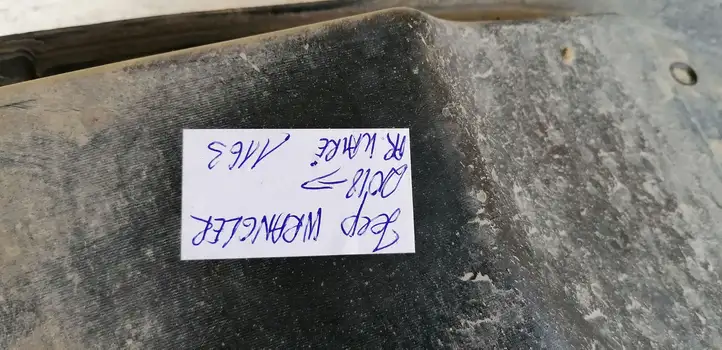 Jeep WRANGLER
2018->
1163